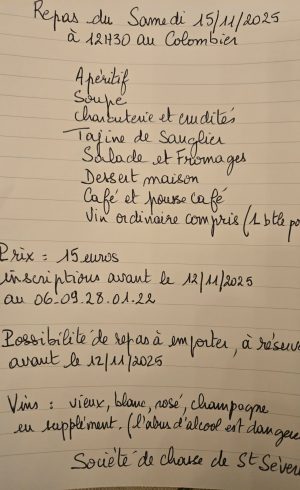 Repas du Samedi 15/11/2025
à 12H30 au Colombier
Apéritif
Soupe
Charcuterie et crudités
Tajine de Sanglier
Salade et Fromages
Dessert maison
Café et pousse café
Vin ordinaire compris (1 btle po
Prix = 15 euros
inscriptions avant le 12/11/2025
au 06.09.28.01.22
Possibilité de repas à emporter, à réserve
avant le 12/11/2025
Vins : vieux, blanc, rosé, champagne
en supplément. (l'abus d'alcool est dangere
Société de chasse de St Séver